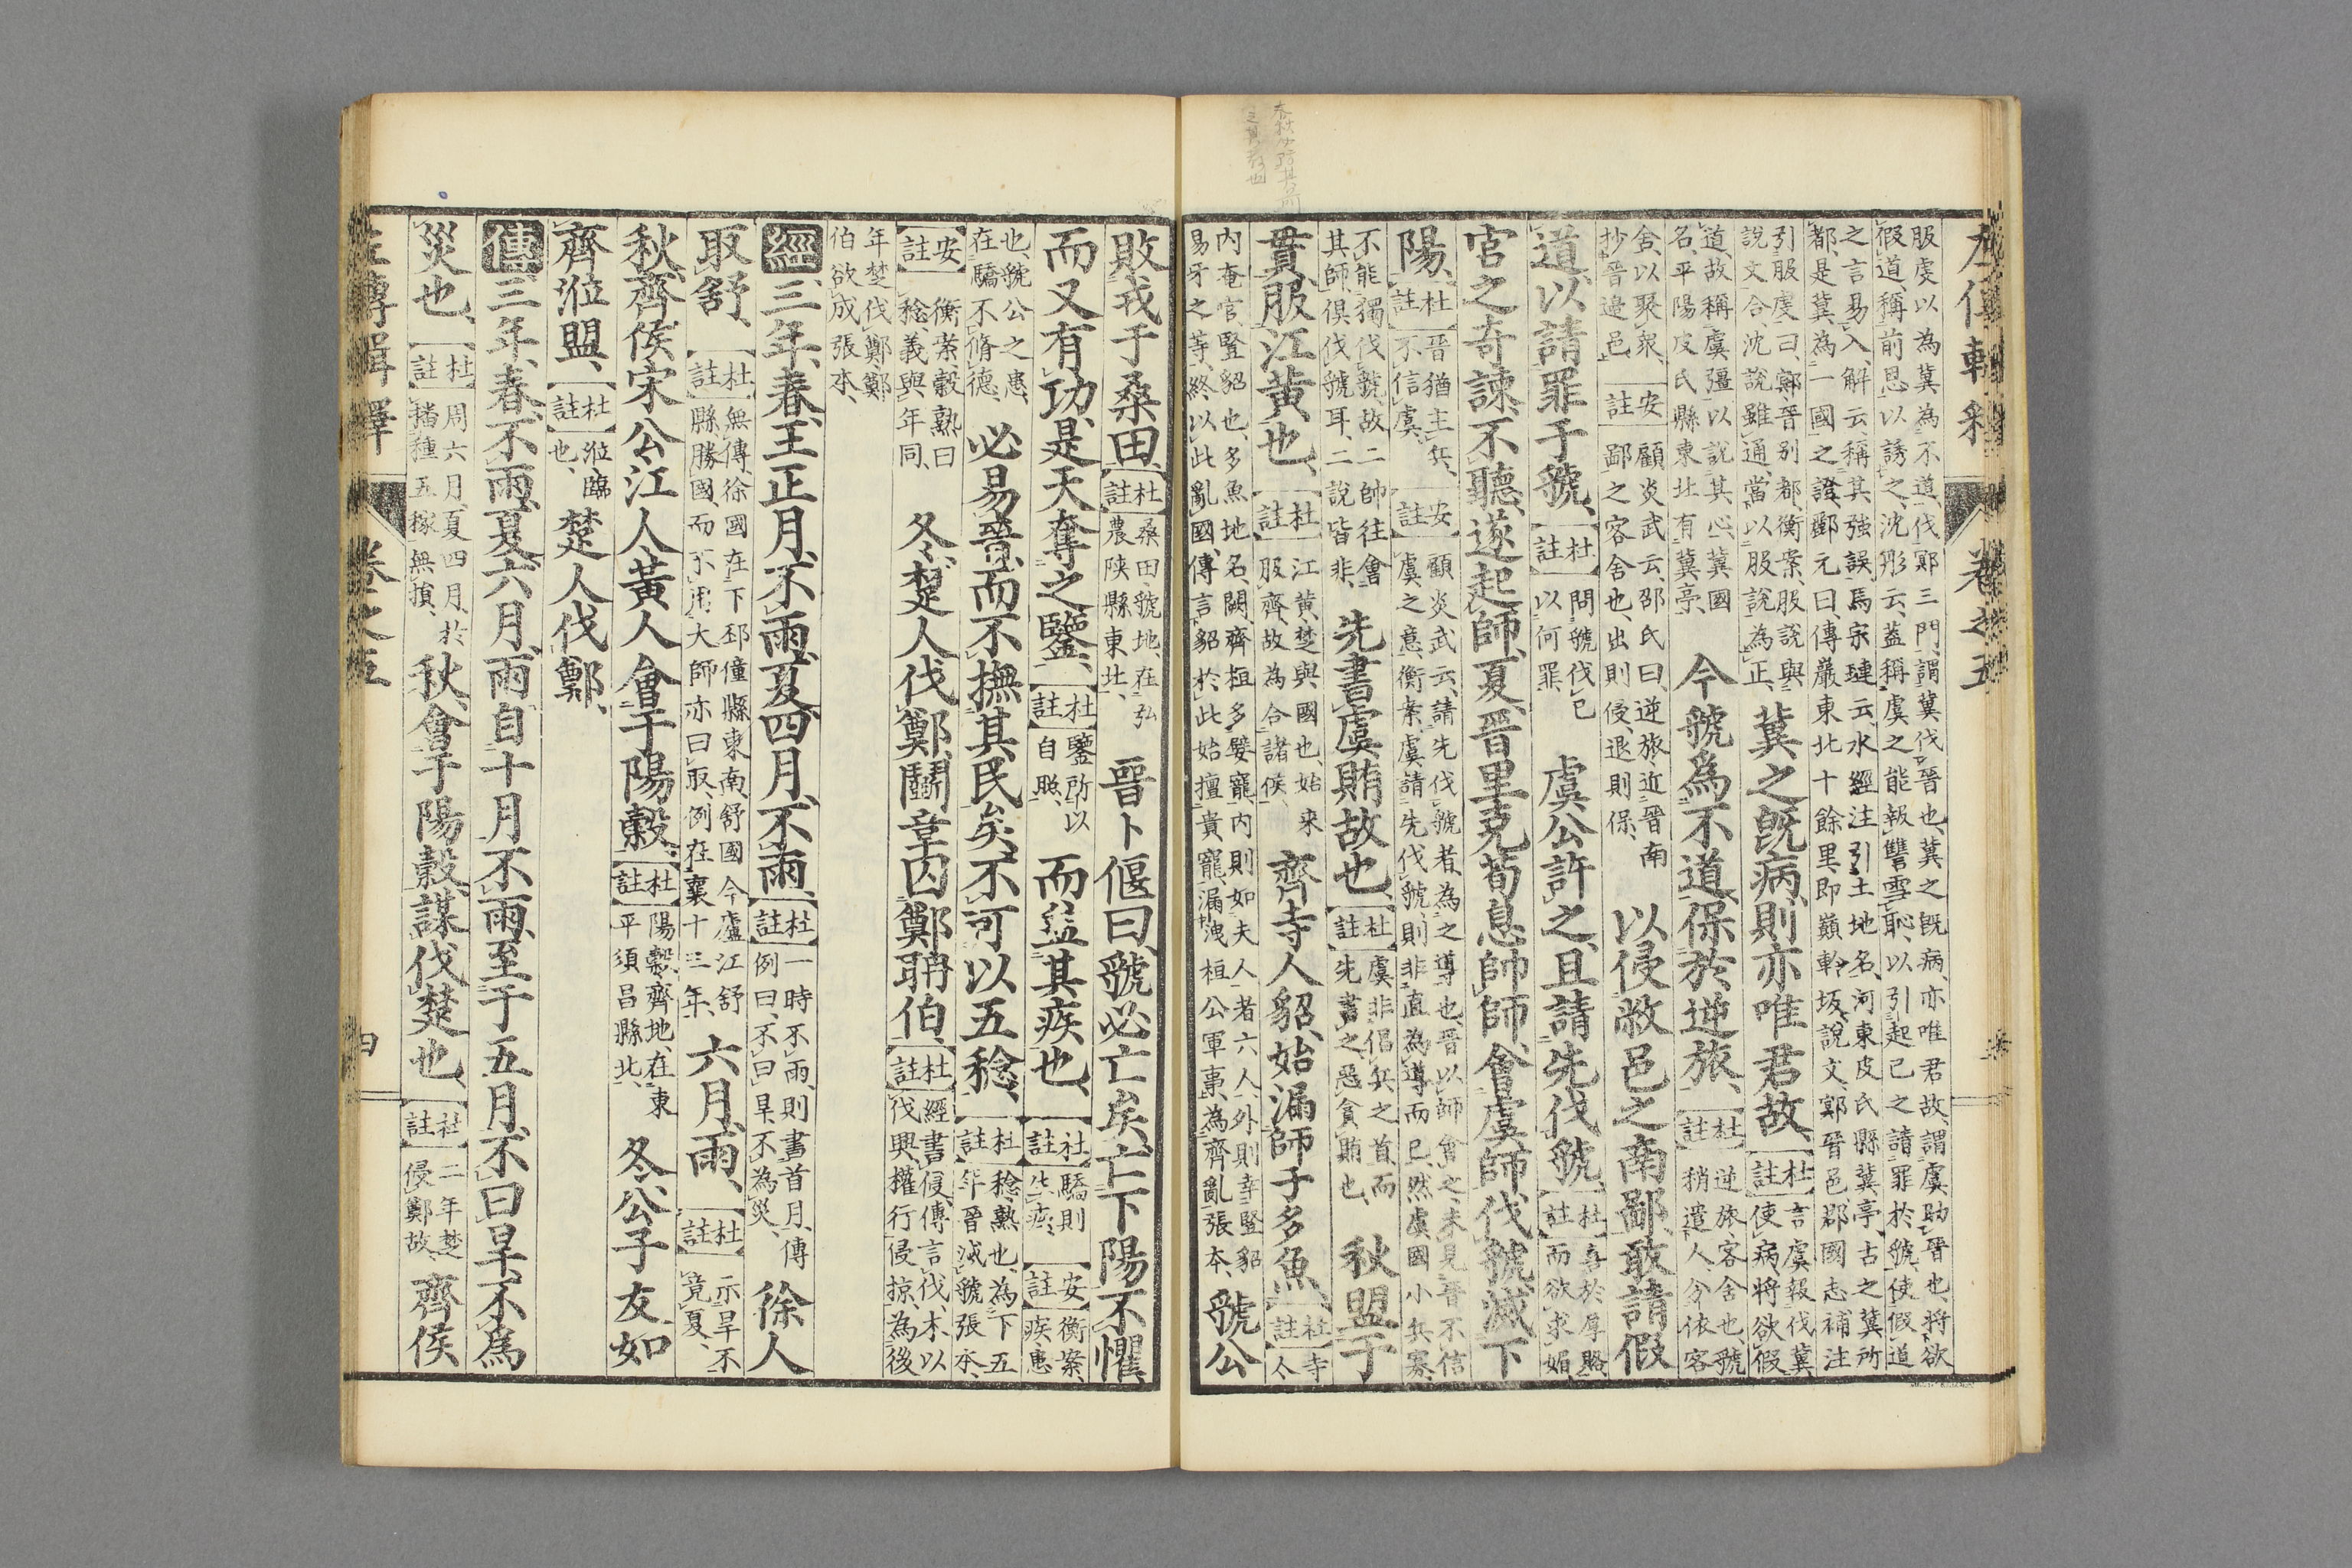 左傳輯釋 卷之五
服虔以為冀為不道、伐鄍三門、謂冀伐晉也、冀之既病、亦唯君故、謂虞助晉也、將欲
假道、稱前恩以誘之、沈彤云、蓋稱虞之能報讐雪恥、以引起己之請罪於虢、使假道
之言易入、解云、稱其強誤焉、宋璉云、水經注引土地名、河東皮氏縣冀亭、古之冀所
都、是冀為一國之證、酈元曰、傳巖東北十餘里、即巔軨坂、說文、鄍晉邑、郡國志補注
引服虔曰、鄍晉別都、衡案、服說與
說文合、沈說雖通、當以服說為正、
冀之既病、則亦唯君故、
杜註 言虞報伐冀
使病、將欲假
道、故稱虞彊以說其心、冀國
名、平陽皮氏縣東北有冀亭、
今虢為不道、保於逆旅、
杜註 逆旅、客舍也、虢
稍遣人、分依客
舍、以聚眾、
抄晉邊邑、
安註 顧炎武云、邵氏曰、逆旅、近晉南
鄙之客舍也、出則侵、退則保、
以侵敝邑之南鄙、敢請假
道、以請罪于虢、
杜註 問虢伐己
以何罪、
虞公許之、且請先伐虢、
杜註 喜於厚賂、
而欲求媚
宮之奇諫、不聽、遂起師、夏、晉里克荀息帥師會虞師、伐虢、滅下
陽、
杜註 晉猶主兵、
不信虞、
安註 顧炎武云、請先伐虢者、為之導也、晉以師會之、未見晉不信
虞之意、衡案、虞請先伐虢、則非直為導而已、然虞國小兵寡、
不能獨伐虢、故二帥往會
其師、俱伐虢耳、二說皆非、
先書虞、賄故也、
杜註 虞非倡兵之首、而
先書之、惡貪賄也、
秋盟于
貫、服江黃也、
杜註 江黃、楚與國也、始來
服齊、故為合諸侯、
齊寺人貂、始漏師于多魚、
杜註 寺人
內奄官、豎貂也、多魚地名、闕、齊桓多嬖寵、內則如夫人者六人、外則幸豎貂
易牙之等、終以此亂國、傳言貂於此始擅貴寵、漏洩桓公軍事、為齊亂張本、
虢公
敗戎于桑田、
杜註 桑田、虢地、在弘
農陝縣東北、
晉卜偃曰、虢必亡矣、亡下陽不懼、
而又有功、是天奪之鑒、
杜註 鑒所以
自照、
而益其疾也、
杜註 驕則
生疾、
安註 衡案、
疾患
也、虢公之患、
在驕不脩德、
必易晉、而不撫其民矣、不可以五稔、
杜註 稔、熟也、為下五
年晉滅虢張本、
安註 衡案、穀熟曰
稔、義與年同、
冬、楚人伐鄭、鬭章囚鄭聃伯、
杜註 經書侵、傳言伐、本以
伐興、權行侵掠、為後
年楚伐鄭、鄭
伯欲成張本、
經 三年、春、王正月、不雨、夏四月、不雨、
杜註 一時不雨、則書首月、傳
例曰、不曰旱、不為災、
徐人
取舒、
杜註 無傳、徐國在下邳僮縣東南、舒國今廬江舒
縣、勝國、而不用大師亦曰取、例在襄十三年、
六月、雨、
杜註 示旱不
竟夏、
秋、齊侯宋公江人黃人、會于陽穀、
杜註 陽穀、齊地、在東
平須昌縣北、
冬、公子友如
齊涖盟、
杜註 涖臨
也、
楚人伐鄭、
傳 三年、春、不雨、夏六月、雨、自十月不雨、至于五月、不曰旱、不為
災也、
杜註 周六月、夏四月、於
播種五稼無損、
秋、會于陽穀、謀伐楚也、
杜註 二年楚
侵鄭故、
齊侯
左傳輯釋 卷之五 四